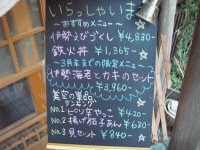 いらっしゃいませ
~おすすめメニュー~
伊勢えびづくし ¥4,830-
鉄火丼 ¥1,365-
~3月末までの限定メニュー~
伊勢海老とカキのセット
¥3,960-
No.1 ピリ辛やっこ ¥420-
No.2 揚げ茄子あん ¥630-
No.3 貝セット ¥840-